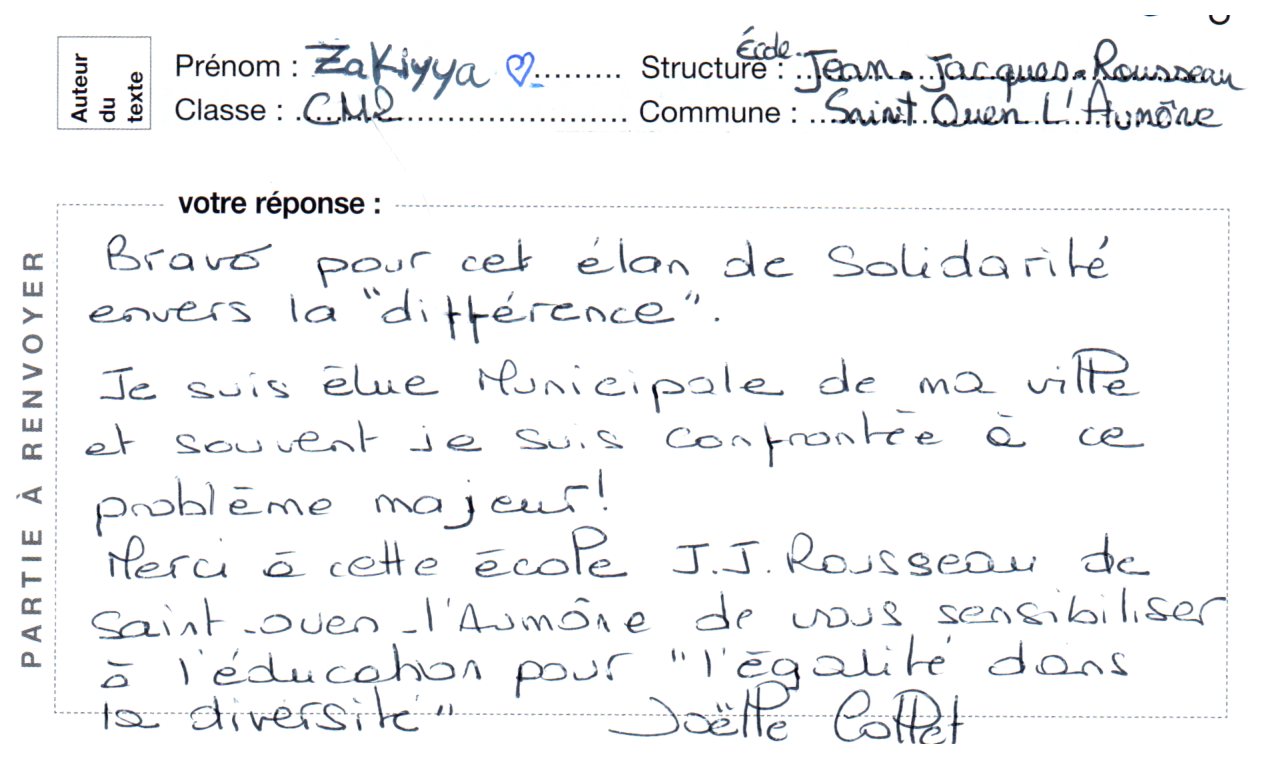 Auteur du texte
Prénom : Zakiyya ♡ Structure : École Jean-Jacques-Rousseau
Classe : CM2 Commune : Saint Ouen L'Aumône
PARTIE À RENVOYER
votre réponse :
Bravo pour cet élan de Solidarité
envers la "différence".
Je suis élue Municipale de ma ville
et souvent je suis confrontée à ce
problème majeur!
Merci à cette école J.J. Rousseau de
Saint-Ouen-l'Aumône de vous sensibiliser
à l'éducation pour "l'égalité dans
la diversité" Joëlle